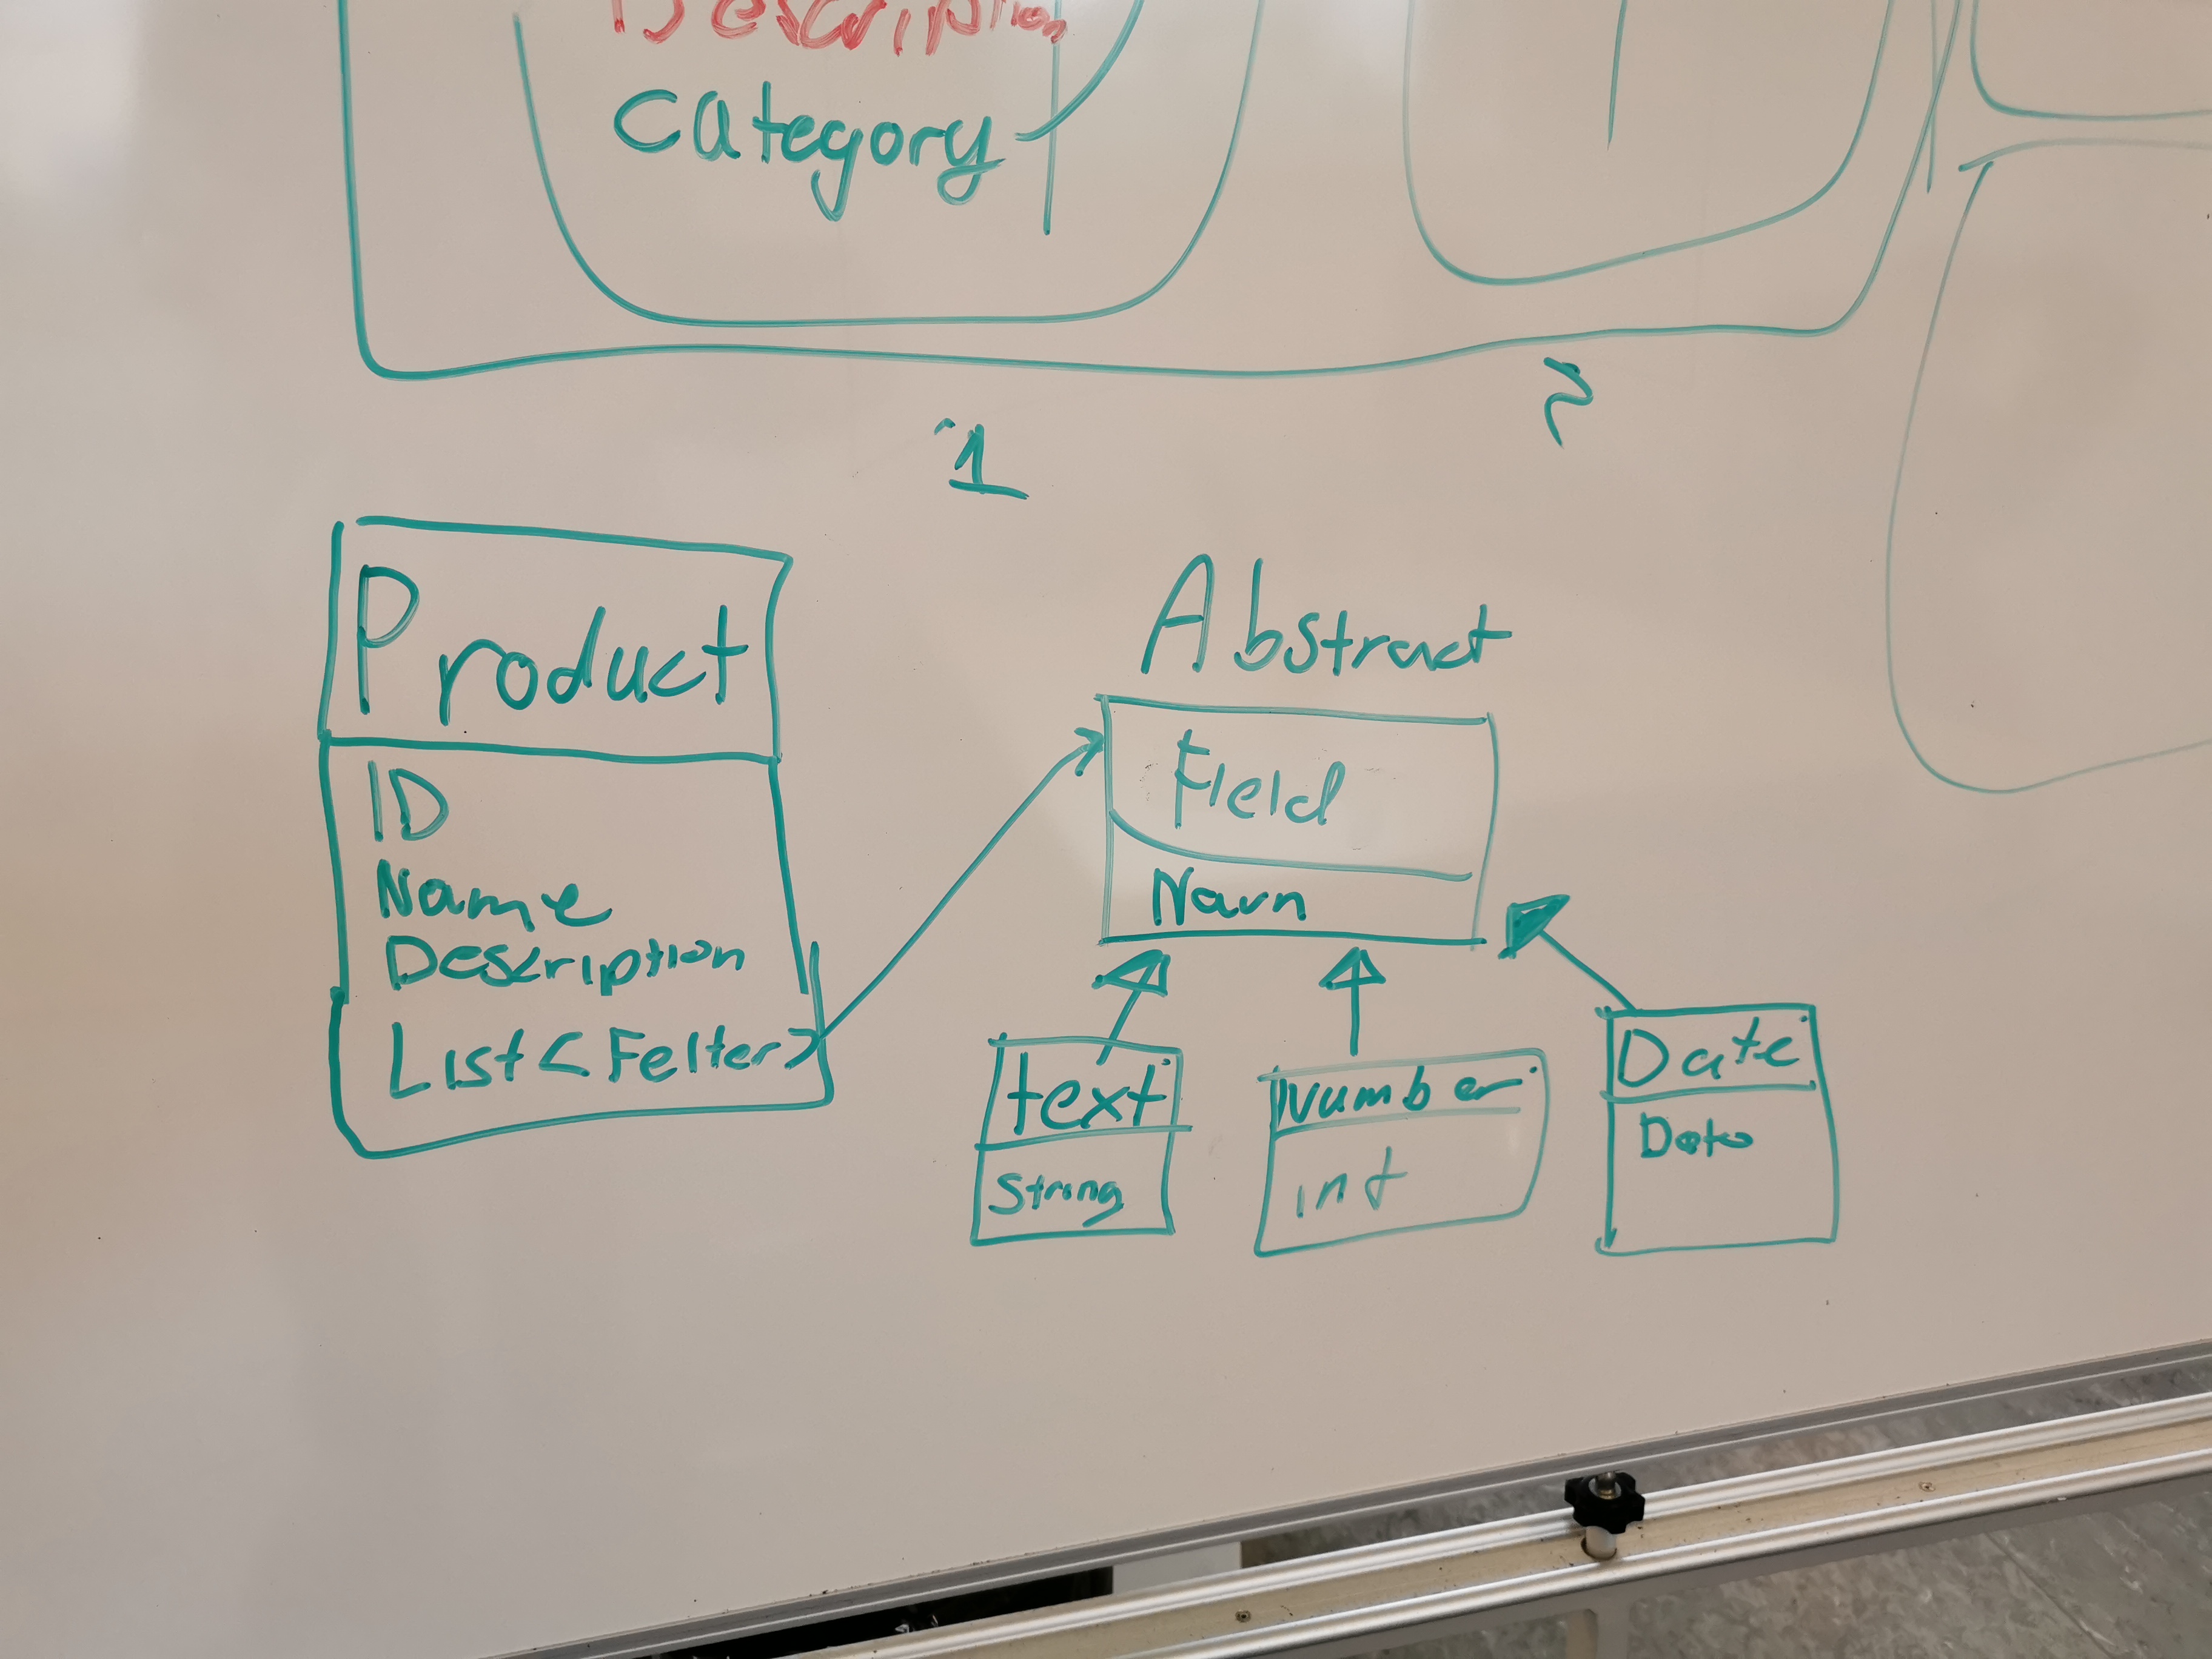 Description
Category
1
2
Product
ID
Name
Description
List<Felter>
Abstract
Field
Navn
text
String
Number
int
Date
Dato